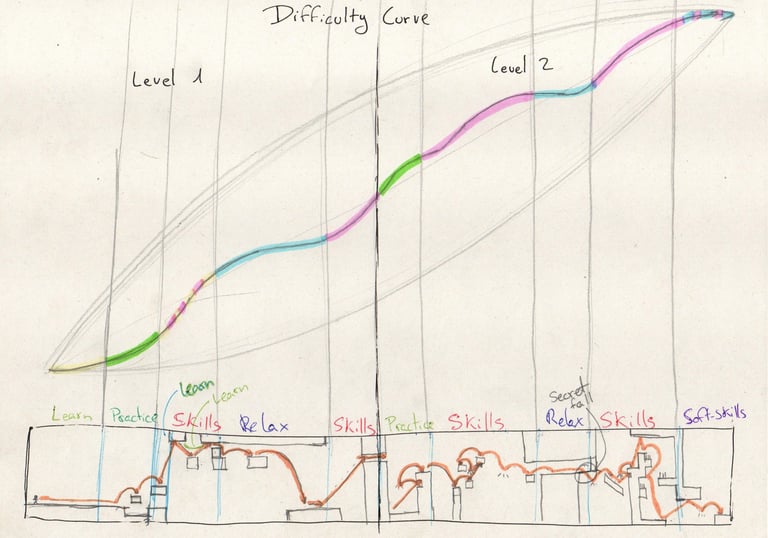 Difficulty Curve
Level 1
Level 2
Learn
Learn
Secret
fall
Learn Practice Skills Relax Skills Practice Skills Relax Skills Soft-skills